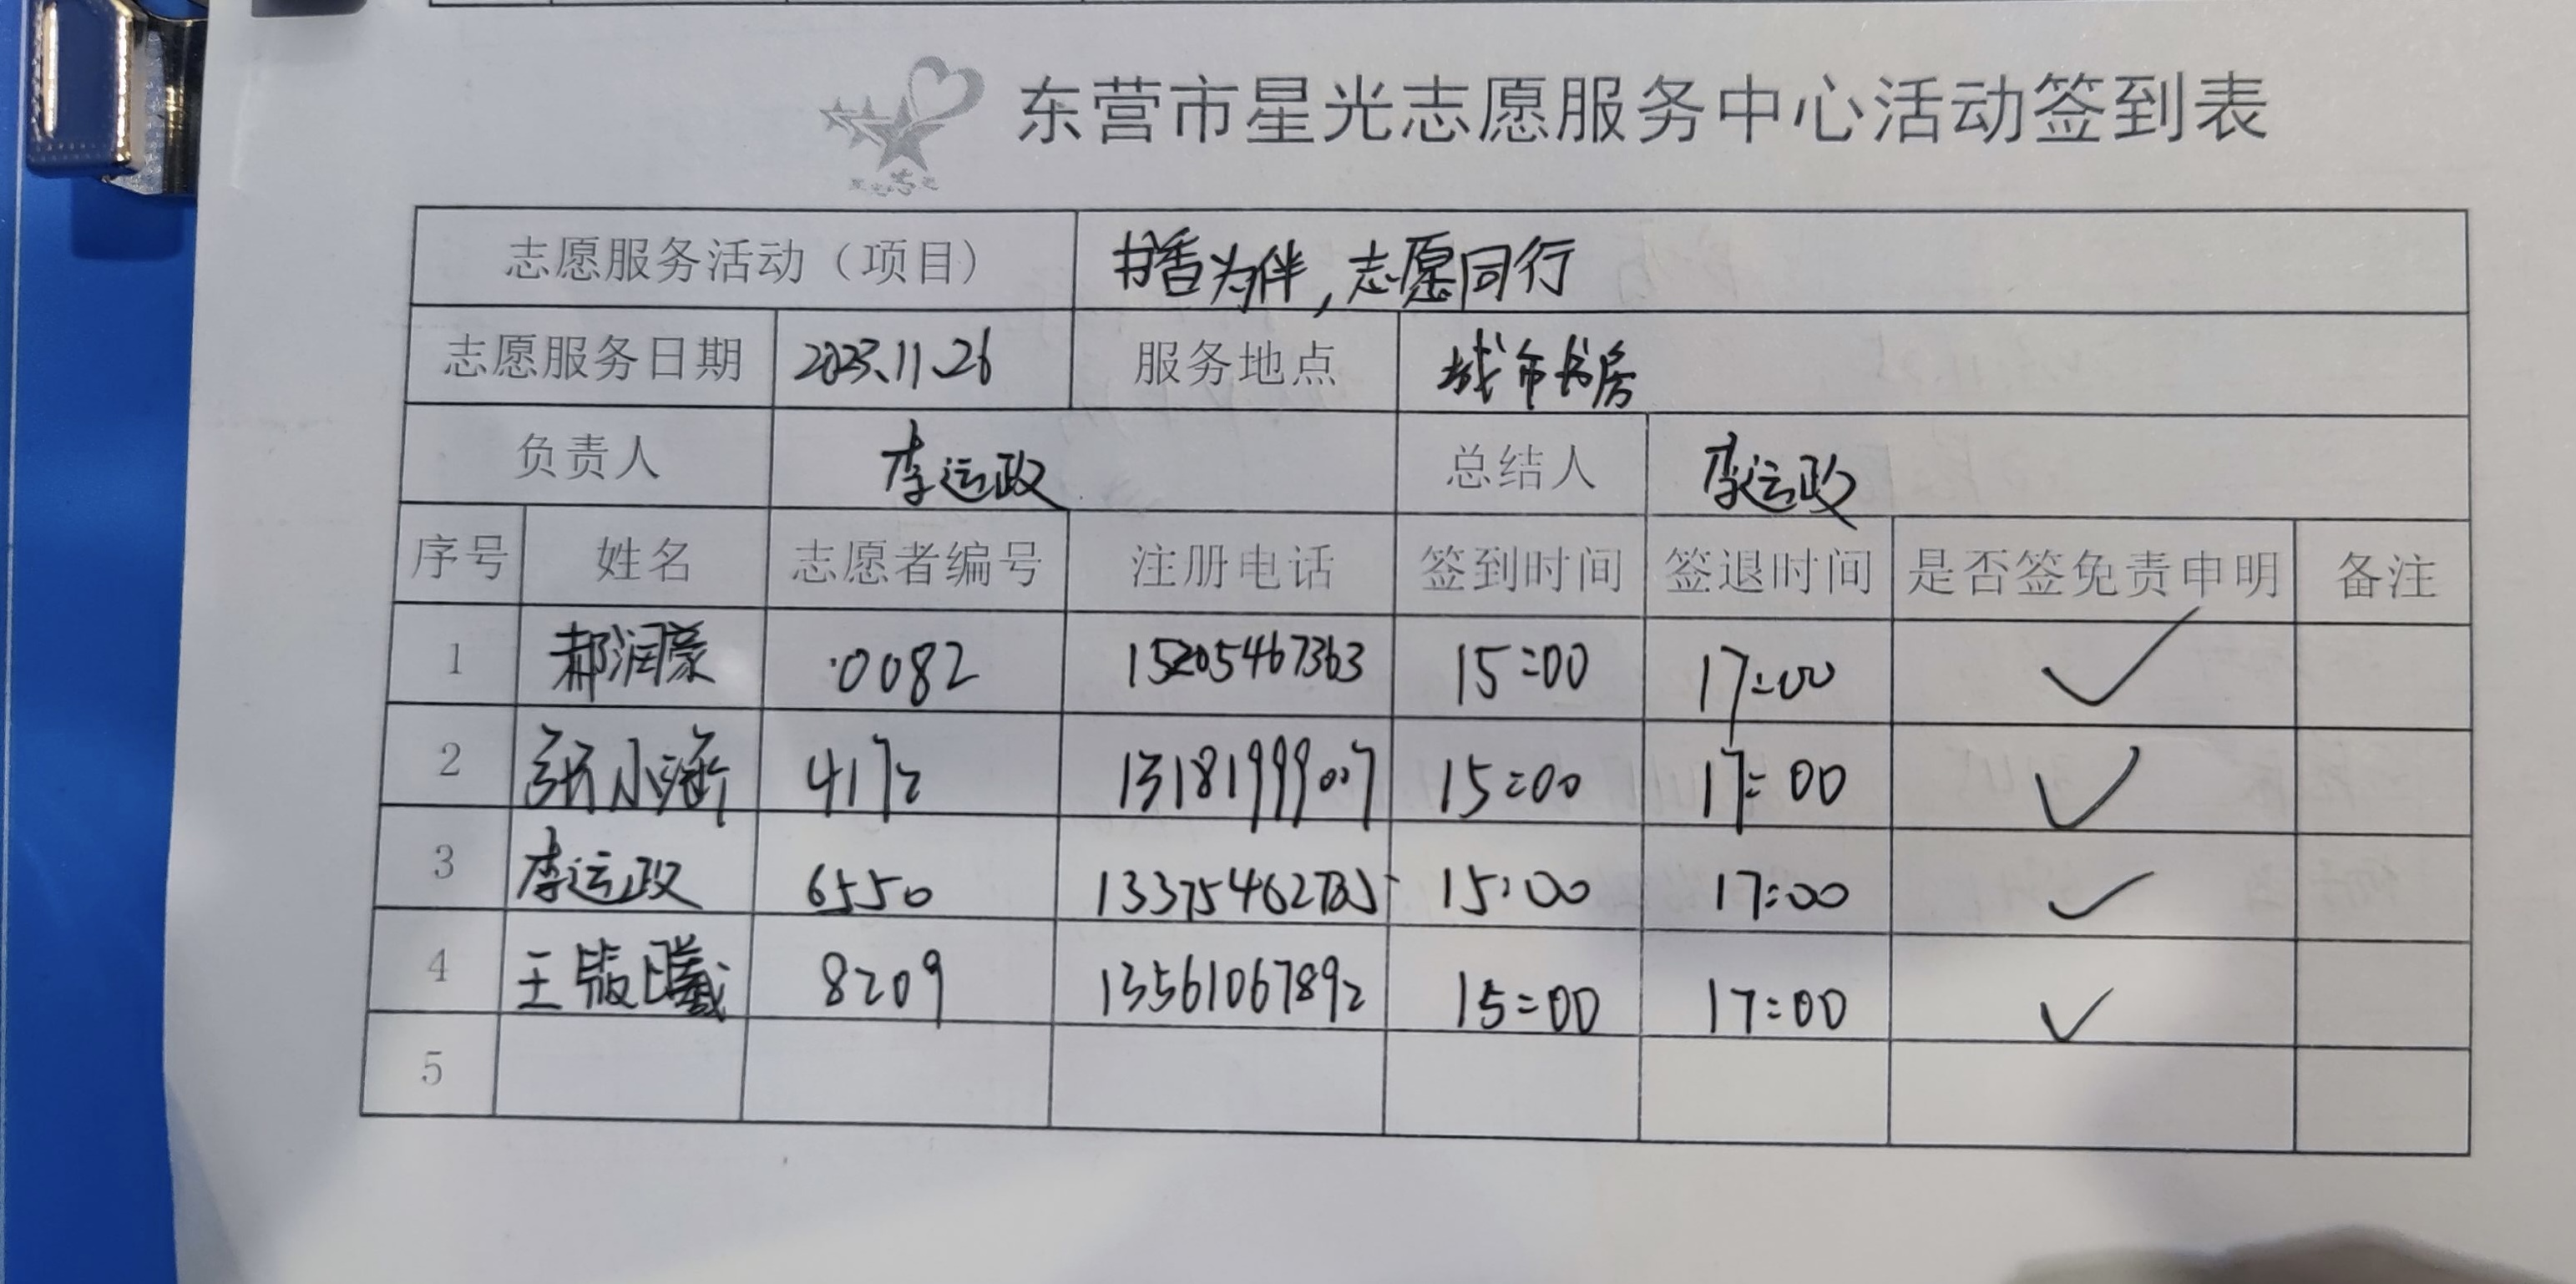 东营市星光志愿服务中心活动签到表
志愿服务活动（项目） 书香为伴，志愿同行
志愿服务日期 2023.11.26 服务地点 城市书房
负责人 李运政 总结人 李运政
序号 姓名 志愿者编号 注册电话 签到时间 签退时间 是否签免责申明 备注
1 郝润豪 0082 15205467363 15:00 17:00 ✓
2 张小涵 4172 13181999007 15:00 17:00 ✓
3 李运政 6550 13375462785 15:00 17:00 ✓
4 王 曦 8209 13561067892 15:00 17:00 ✓
5